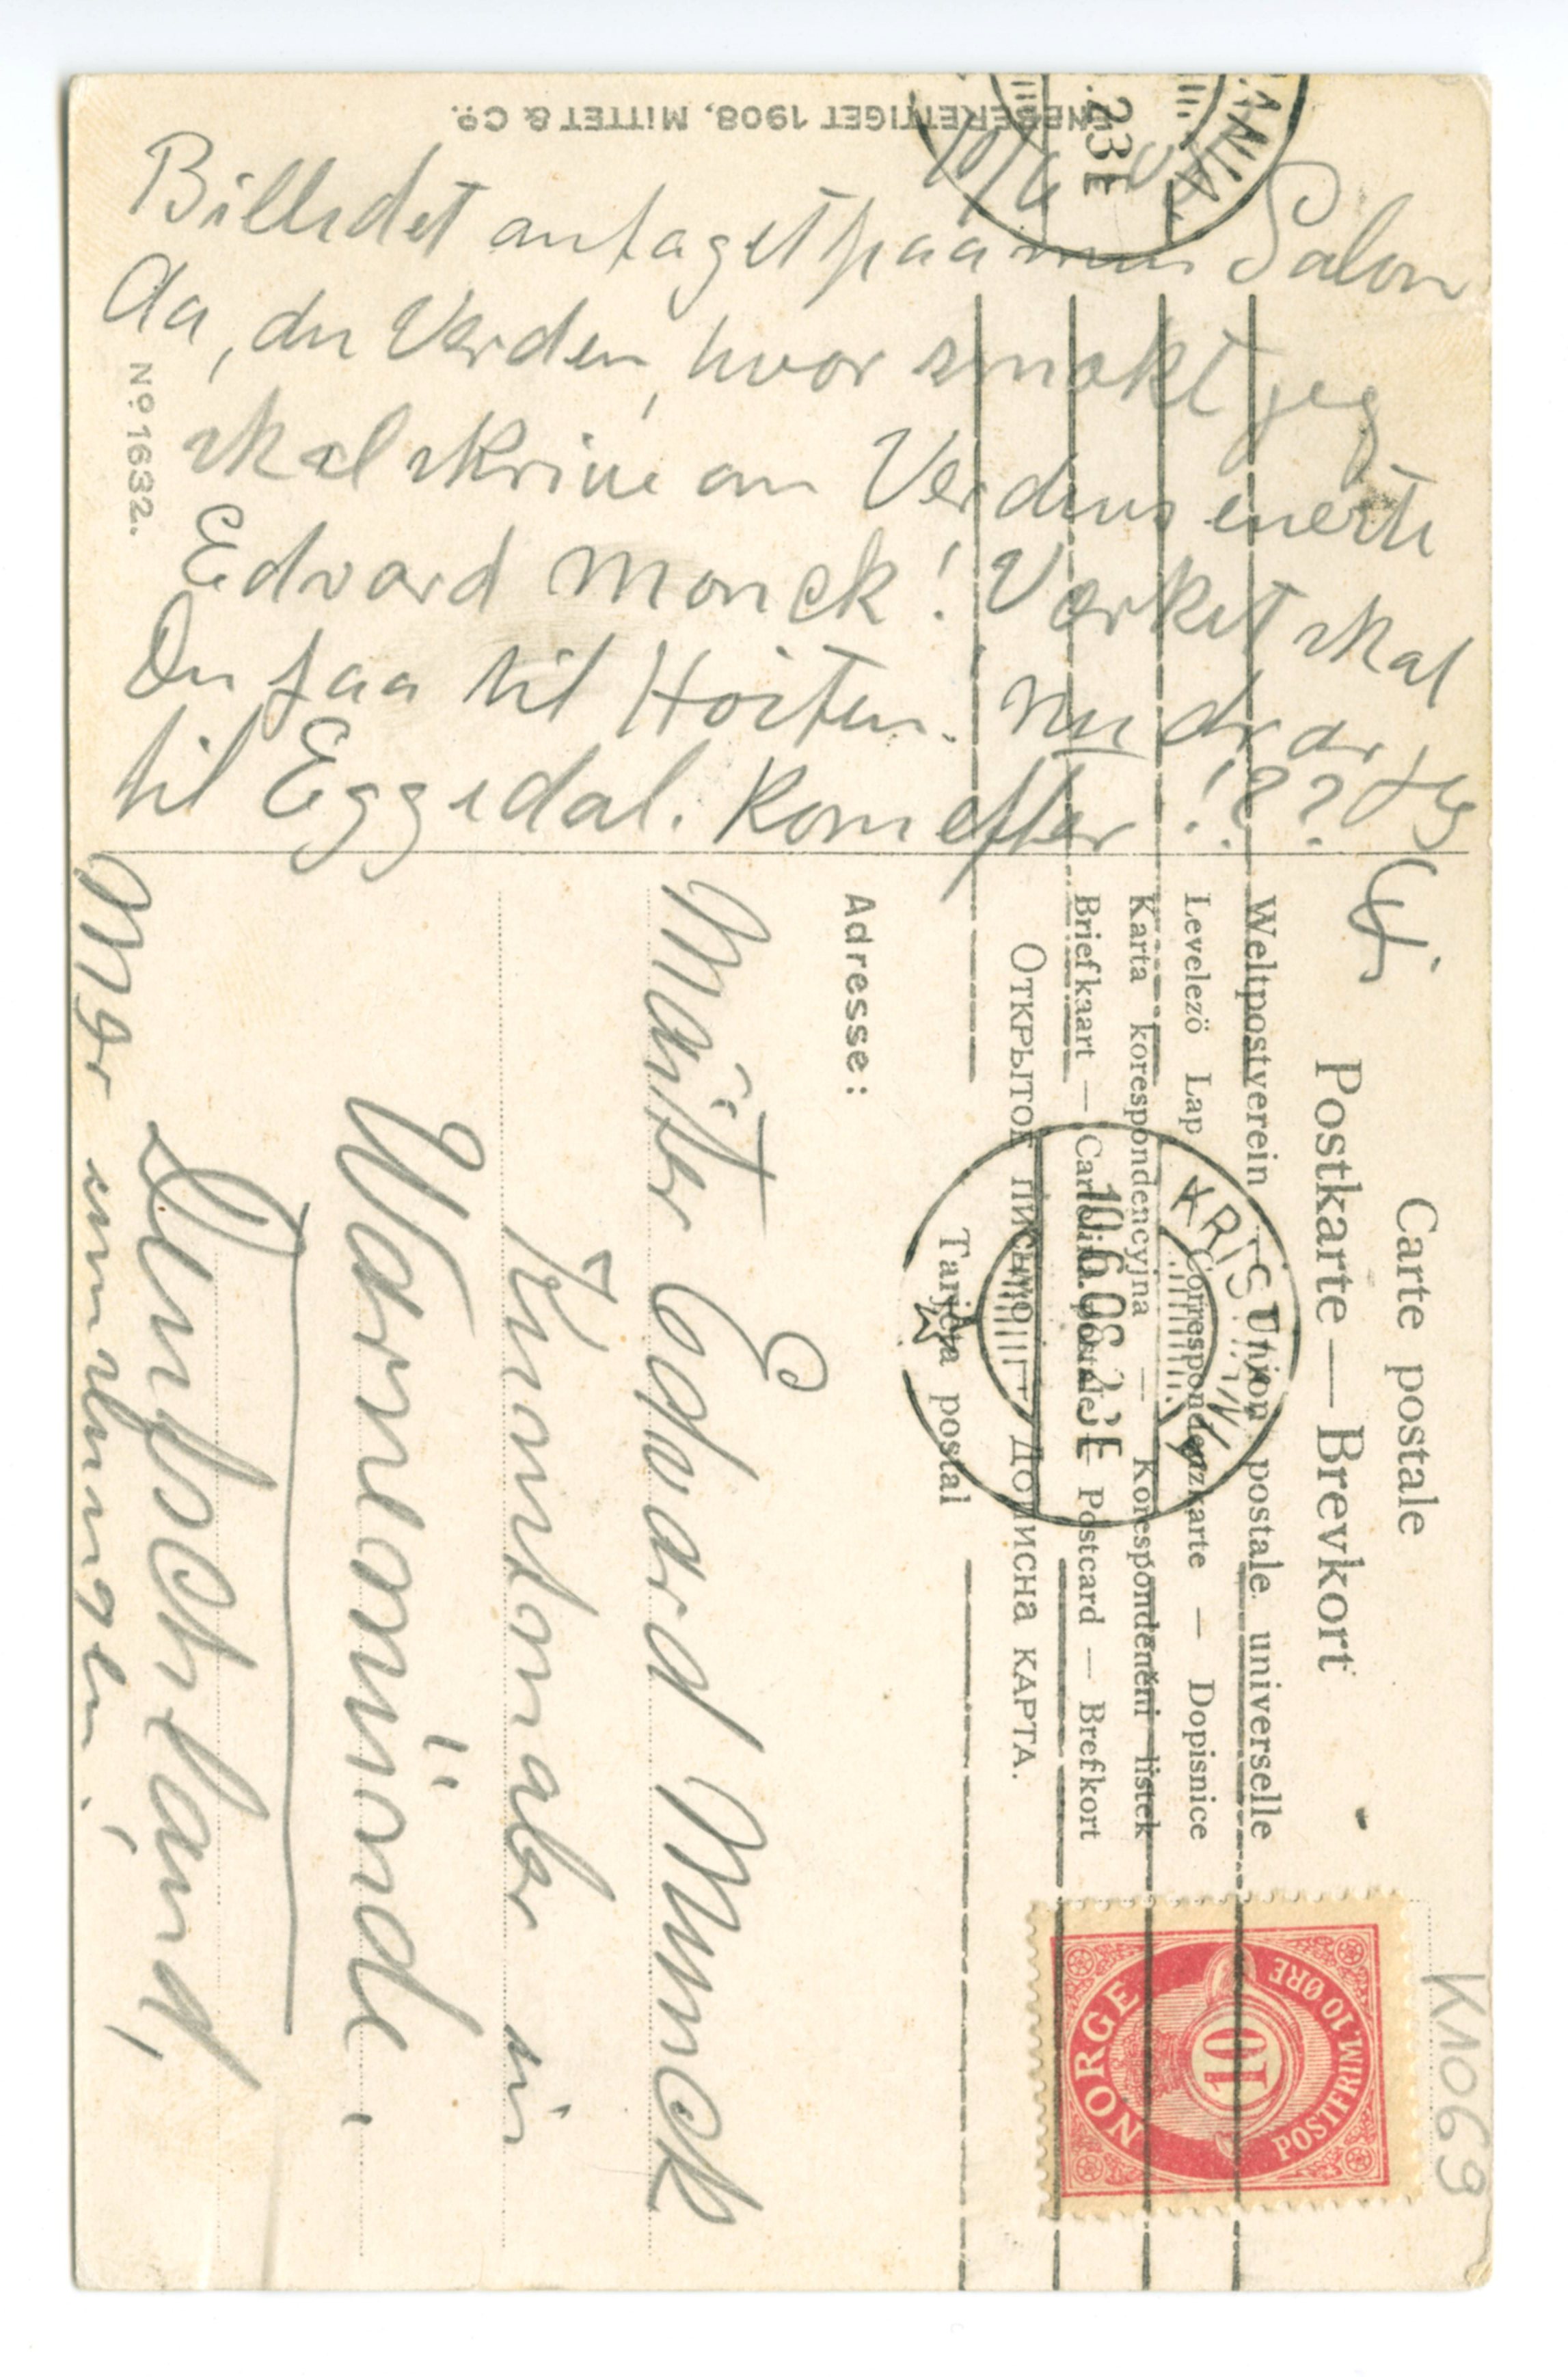 ENEBERETTIGET 1908, MITTET & Co.
Nº 1632.
10/6 08
Billedet antaget paa min Salon
da, du Verden, hvor smukt jeg
skal skrive om Verdens eneste
Edvard Monck! Værket skal
Du faa til Høsten. Nu drar jeg
til Eggedal. Kom efter!??
Carte postale
Postkarte — Brevkort
Weltpostverein — Union postale universelle
Levelezö Lap — Correspondenzkarte — Dopisnice
Karta korespondencyjna — Korespondenčni listek
Briefkaart — Cartolina postale — Postcard — Brefkort
Открытое письмо — Дописна карта.
Tarjeta postal
KRISTIANIA
10.6.08. 23 E
NORGE
POSTFRIM. 10 ØRE
10
K1069
Adresse:
Maister Edvard Munck
Kunstmaler in
Warnemünde.
Deutschland,